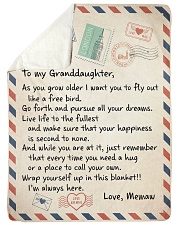 To my Granddaughter,
As you grow older I want you to fly out
like a free bird.
Go forth and pursue all your dreams.
Live life to the fullest
and make sure that your happiness
is second to none.
And while you are at it, just remember
that every time you need a hug
or a place to call your own.
Wrap yourself up in this blanket!!
I'm always here.
Love, Memaw